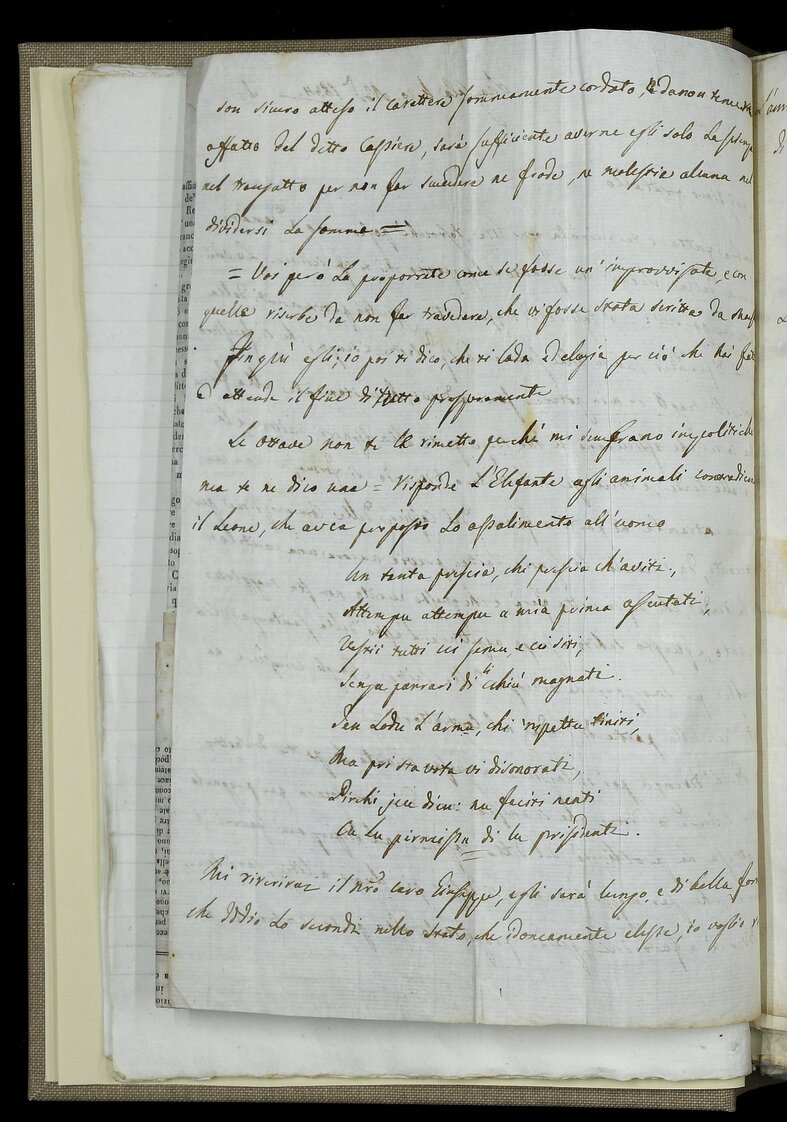 son sicuro atteso il carattere sommamente cordato, e da non temersi
affatto del ditto Cassiere, sarà sufficiente averne egli solo la scienza
nel trasfatto per non far succedere ne frode, ne molestie alcuna nel
dividersi la somma =
= Voi però la proporrete come se fosse un' improvvisata, e con
quelle riserbe da non far travedere, che vi fosse stata scritta da
Fin quì egli; io poi vi dico, che vi loda ed elogia per ciò che hai
e attende il fine di tutto prosperamente
Le ottave non te le rimetto perchè mi sembrano impolitiche
ma te ne dico una = Risponde L'Elefante agli animali
il Leone, che avea proposto Lo assalimento all'uomo
Un tanta prescia, chi prescia ch'aviti,
Attempu attempu a mia prima assentati;
Vestii tutti cci semu e cci siti,
Senza pararsi di cchiù magnati.
Jeu Lodu L'armu, chi rispettu tiniti,
Ma pri sta vota vi disonorati,
Pirchi jeu dicu: nu faciti nenti
Cu lu pirmissu di lu prisidenti.
Mi riverirai il nro caro Giuseppe, egli sarà lungo, e di bella
che Iddio Lo secondi nello stato, che idoneamente elesse, io voglio